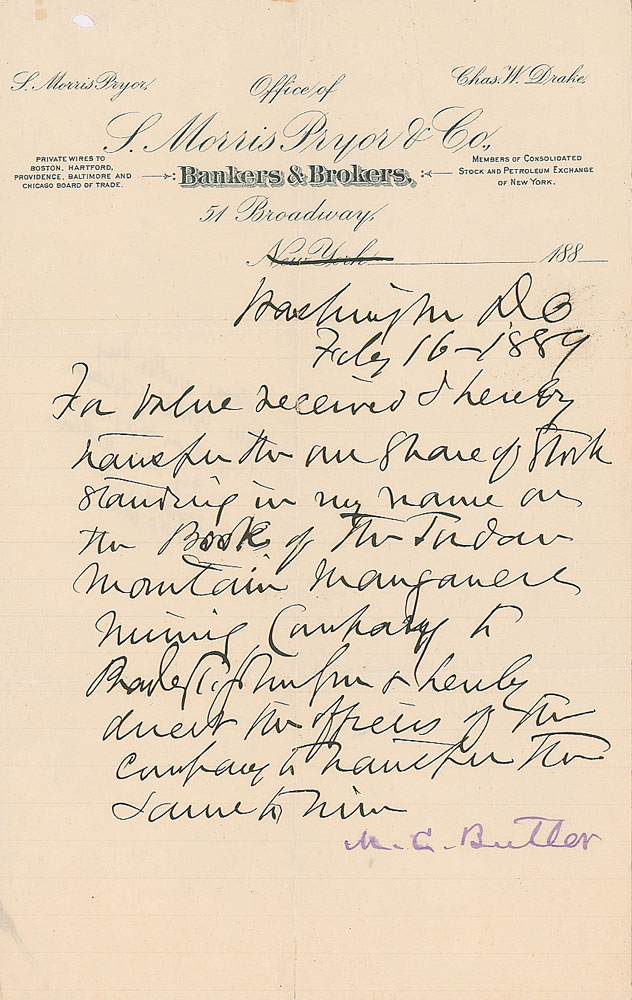 S. Morris Pryor,
Office of
Chas. W. Drake,
S. Morris Pryor & Co.,
PRIVATE WIRES TO
BOSTON, HARTFORD,
PROVIDENCE, BALTIMORE AND
CHICAGO BOARD OF TRADE.
Bankers & Brokers,
MEMBERS OF CONSOLIDATED
STOCK AND PETROLEUM EXCHANGE
OF NEW YORK.
51 Broadway,
New York 188
Washington D C
Feby 16-1889
For value received I hereby
transfer the one share of Stock
standing in my name on
the Book of The
Mountain Manganese
Mining Company to
Bradley T. Johnson & hereby
direct the officers of the
Company to transfer the
same to him
M. C. Butler